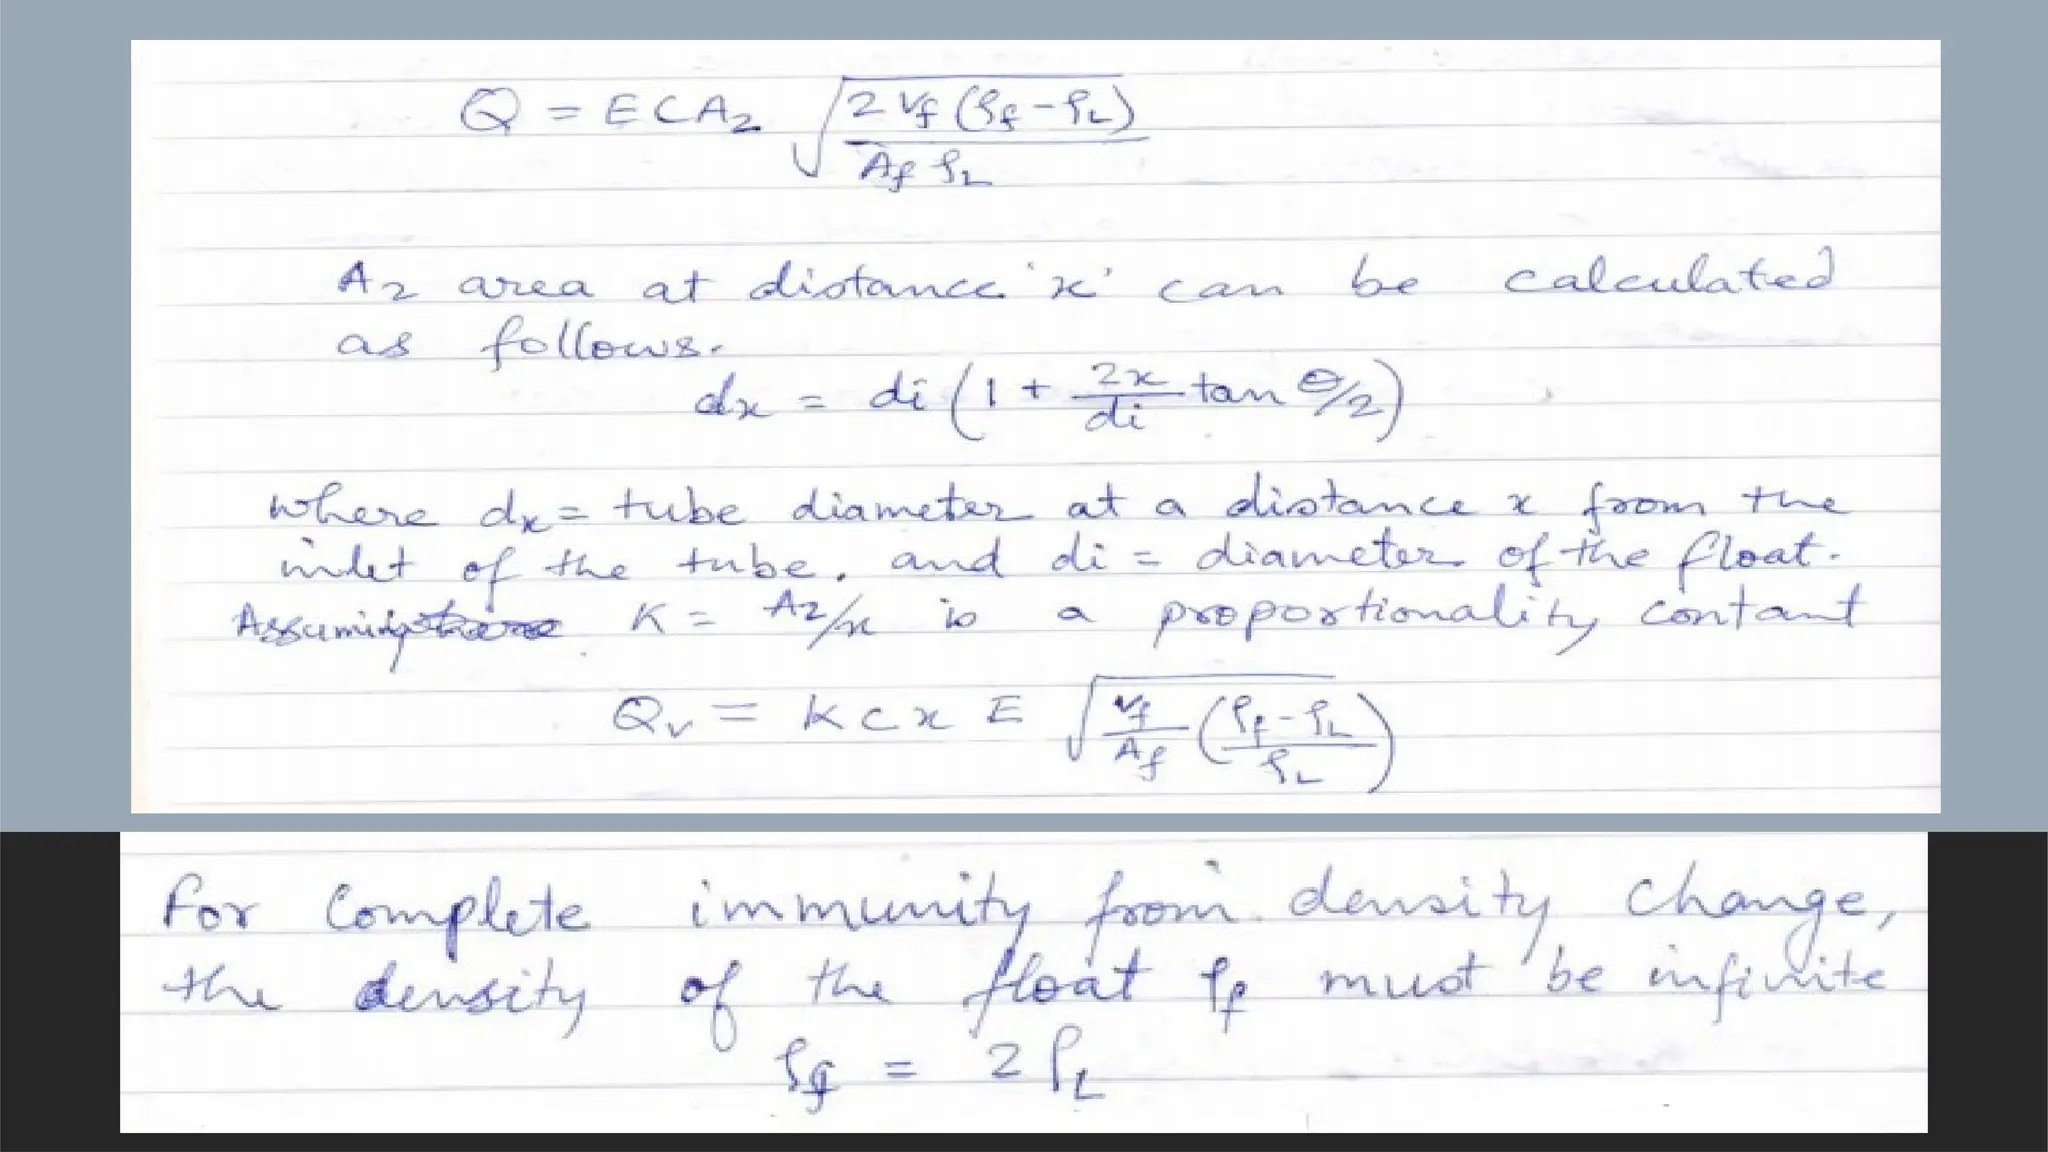 Q = E C A₂ √(2 Vf (ρf - ρL) / Af ρL)
A₂ area at distance 'x' can be calculated
as follows.
dx = di (1 + 2x/di tan θ/2)
where dx = tube diameter at a distance x from the
inlet of the tube. and di = diameter of the float.
Assuming K = A₂/x is a proportionality contant
Qv = K C x E √(Vf/Af (ρf - ρL / ρL))
For Complete immunity from density change,
the density of the float ρf must be infinite
ρf = 2 ρL